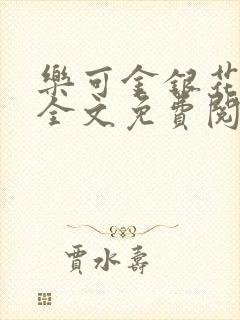 樂可金銀花
全文免費閱
賈水壽